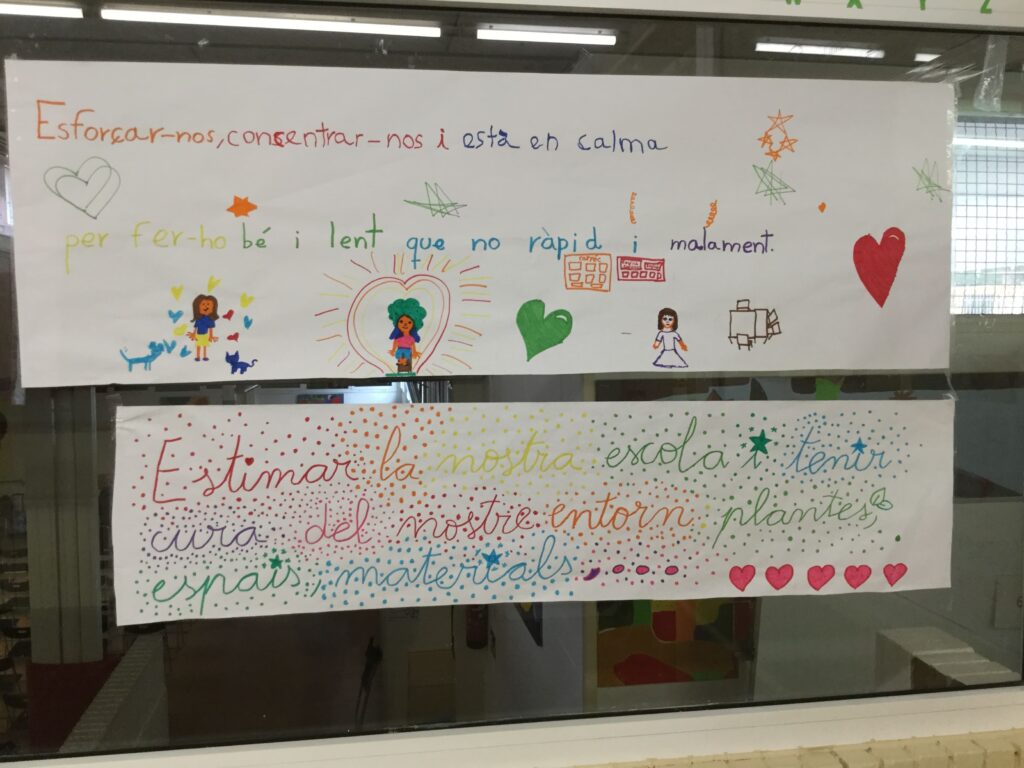 W X Y Z
Esforçar-nos, consentrar-nos i està en calma
per fer-ho bé i lent que no ràpid i malament.
Estimar la nostra escola i tenir
cura del nostre entorn plantes,
espais, matericals, ....